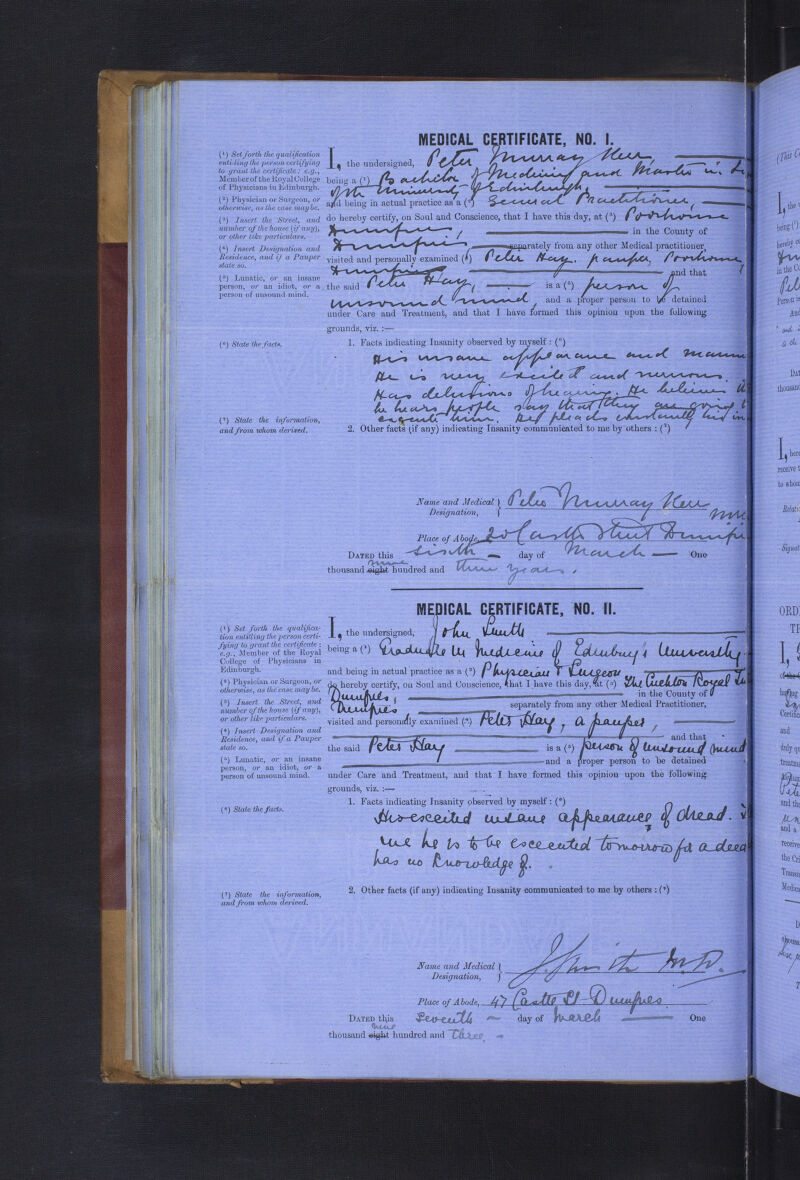 MEDICAL CERTIFICATE, NO. I.
(¹) Set forth the qualification
entitling the person certifying
to grant the certificate; e.g.,
Member of the Royal College
of Physicians in Edinburgh.
(²) Physician or Surgeon, or
otherwise, as the case may be.
(³) Insert the Street, and
number of the house (if any),
or other like particulars.
(⁴) Insert Designation and
Residence, and if a Pauper
state so.
(⁵) Lunatic, or an insane
person, or an idiot, or a
person of unsound mind.
(⁶) State the facts.
(⁷) State the information,
and from whom derived.
I, the undersigned, Peter Murray Kerr,
being a (¹) Bachelor of Medicine and Master in
of the University of Edinburgh,
and being in actual practice as a (²) General Practitioner,
do hereby certify, on Soul and Conscience, that I have this day, at (³) Poorhouse
Dumfries, in the County of
Dumfries separately from any other Medical practitioner,
visited and personally examined (⁴) Peter Hay. pauper, Poorhouse,
Dumfries and that
the said Peter Hay, is a (⁵) person of
unsound mind, and a proper person to be detained
under Care and Treatment, and that I have formed this opinion upon the following
grounds, viz. :—
1. Facts indicating Insanity observed by myself : (⁶)
His insane appearance and manner
He is very excited and nervous.
Has delusions of hearing. He believes
he hears people say that they are going
execute him. He pleads constantly
2. Other facts (if any) indicating Insanity communicated to me by others : (⁷)
Name and Medical Peter Murray Kerr
Designation,
Place of Abode, 20 Castle Street Dumfries
DATED this sixth day of March One
nine
thousand eight hundred and three years.
MEDICAL CERTIFICATE, NO. II.
(¹) Set forth the qualifica-
tion entitling the person certi-
fying to grant the certificate :
e.g., Member of the Royal
College of Physicians in
Edinburgh.
(²) Physician or Surgeon, or
otherwise, as the case may be.
(³) Insert the Street, and
number of the house (if any),
or other like particulars.
(⁴) Insert Designation and
Residence, and if a Pauper
state so.
(⁵) Lunatic, or an insane
person, or an idiot, or a
person of unsound mind.
(⁶) State the facts.
(⁷) State the information,
and from whom derived.
I, the undersigned, John Smith
being a (¹) Graduate in Medicine of Edinburg's University
and being in actual practice as a (²) Physician & Surgeon
do hereby certify, on Soul and Conscience, that I have this day, at (³) The Crichton Royal
Dumfries, in the County of
Dumfries separately from any other Medical Practitioner,
visited and personally examined (⁴) Peter Hay, a pauper,
and that
the said Peter Hay is a (⁵) person of unsound mind
and a proper person to be detained
under Care and Treatment, and that I have formed this opinion upon the following
grounds, viz. :—
1. Facts indicating Insanity observed by myself : (⁶)
His excited insane appearance of dread.
me he is to be executed tomorrow for a deed
has no knowledge of.
2. Other facts (if any) indicating Insanity communicated to me by others : (⁷)
Name and Medical J Smith M.D.
Designation,
Place of Abode, 47 Castle St Dumfries
DATED this Seventh day of March One
nine
thousand eight hundred and three